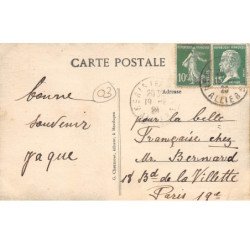 CARTE POSTALE
Adresse
bonne
souvenir
jaque
pour la belle
Française chez
Mr. Bernard
18 Bd de la Villette
Paris 19e
ALLIER
10c
15c